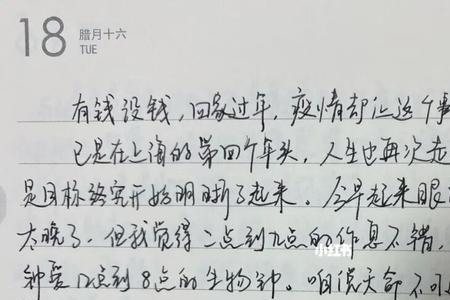 18 腊月十六
TUE
有钱没钱,回家过年,疫情却让这个事
已是在上海的第四个年头,人生也再次走
是目标终究开始明晰了起来。今早起来眼
太晚了,但我觉得二点到九点的作息不错,
钟爱12点到8点的生物钟。咱很天命不可
小红书